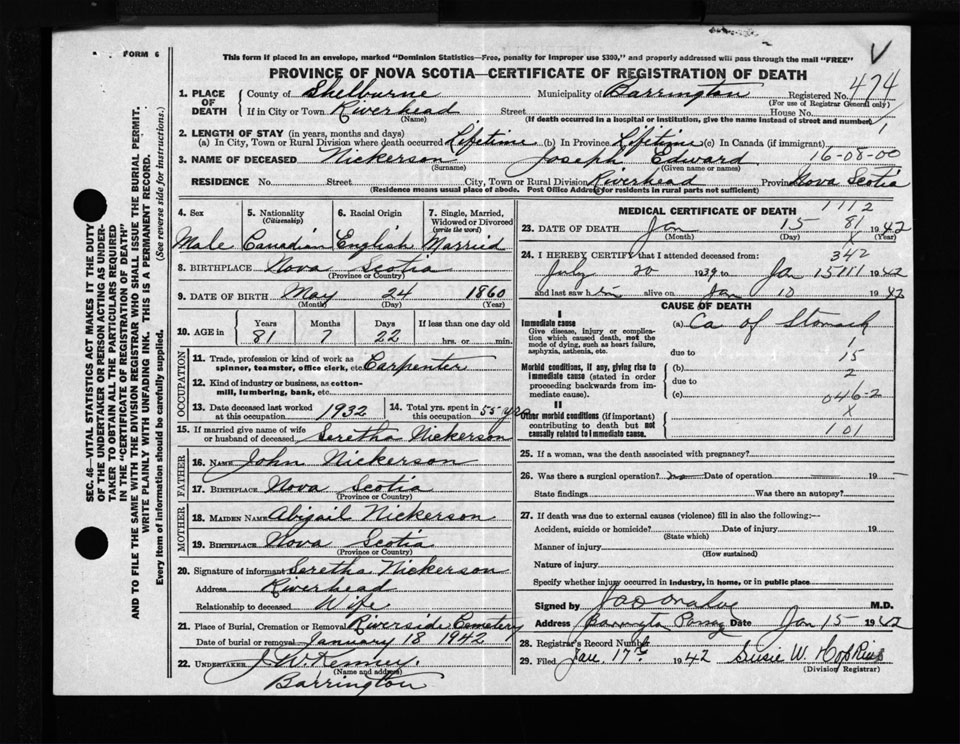 FORM 6
This form if placed in an envelope, marked "Dominion Statistics—Free, penalty for improper use $300," and properly addressed will pass through the mail "FREE"
PROVINCE OF NOVA SCOTIA—CERTIFICATE OF REGISTRATION OF DEATH
V
1. PLACE OF DEATH
County of Shelburne Municipality of Barrington Registered No. 474
(For use of Registrar General only)
If in City or Town Riverhead Street House No.
(Name) (If death occurred in a hospital or institution, give the name instead of street and number)
1
2. LENGTH OF STAY (in years, months and days)
(a) In City, Town or Rural Division where death occurred Lifetime (b) In Province Lifetime (c) In Canada (if immigrant)
3. NAME OF DECEASED Nickerson Joseph Edward 16-08-00
(Surname) (Given name or names)
RESIDENCE No. Street City, Town or Rural Division Riverhead Province Nova Scotia
(Residence means usual place of abode. Post Office Address for residents in rural parts not sufficient)
4. Sex 5. Nationality (Citizenship) 6. Racial Origin 7. Single, Married, Widowed or Divorced (write the word)
Male Canadian English Married
8. BIRTHPLACE Nova Scotia
(Province or Country)
9. DATE OF BIRTH May 24 1860
(Month) (Day) (Year)
10. AGE in Years Months Days If less than one day old
81 7 22 hrs. or min.
OCCUPATION
11. Trade, profession or kind of work as spinner, teamster, office clerk, etc. Carpenter
12. Kind of industry or business, as cotton-mill, lumbering, bank, etc.
13. Date deceased last worked at this occupation 1932 14. Total yrs. spent in this occupation 55 yrs
15. If married give name of wife or husband of deceased Seretha Nickerson
FATHER
16. NAME John Nickerson
17. BIRTHPLACE Nova Scotia
(Province or Country)
MOTHER
18. MAIDEN NAME Abigail Nickerson
19. BIRTHPLACE Nova Scotia
(Province or Country)
20. Signature of informant Seretha Nickerson
Address Riverhead
Relationship to deceased Wife
21. Place of Burial, Cremation or Removal Riverside Cemetery
Date of burial or removal January 18 1942
22. UNDERTAKER J. W. Kenney.
(Name and address)
Barrington
MEDICAL CERTIFICATE OF DEATH 1112
23. DATE OF DEATH Jan 15 81 1942
(Month) (Day) X (Year)
342
24. I HEREBY CERTIFY that I attended deceased from:
July 20 1939 to Jan 15 111 1942
and last saw him alive on Jan 10 1942
CAUSE OF DEATH
I
Immediate cause (a) Ca of Stomach
Give disease, injury or complication which caused death, not the mode of dying, such as heart failure, asphyxia, asthenia, etc.
1
due to 15
Morbid conditions, if any, giving rise to immediate cause (stated in order proceeding backwards from immediate cause).
(b) 2
due to
(c) 046-2
II X
Other morbid conditions (if important) contributing to death but not causally related to immediate cause.
101
25. If a woman, was the death associated with pregnancy?
26. Was there a surgical operation? no Date of operation 19
State findings Was there an autopsy?
27. If death was due to external causes (violence) fill in also the following:—
Accident, suicide or homicide? Date of injury 19
(State which)
Manner of injury
(How sustained)
Nature of injury
Specify whether injury occurred in industry, in home, or in public place
Signed by M.D.
Address Barrington Passag Date Jan 15 1942
28. Registrar's Record Number
29. Filed Jan. 17th 1942 Susie W. Hopkins
(Division Registrar)
SEC. 46—VITAL STATISTICS ACT MAKES IT THE DUTY
OF THE UNDERTAKER OR PERSON ACTING AS UNDER-
TAKER TO OBTAIN ALL THE PARTICULARS REQUIRED
IN THE "CERTIFICATE OF REGISTRATION OF DEATH"
AND TO FILE THE SAME WITH THE DIVISION REGISTRAR WHO SHALL ISSUE THE BURIAL PERMIT.
WRITE PLAINLY WITH UNFADING INK. THIS IS A PERMANENT RECORD.
Every item of information should be carefully supplied. (See reverse side for instructions.)